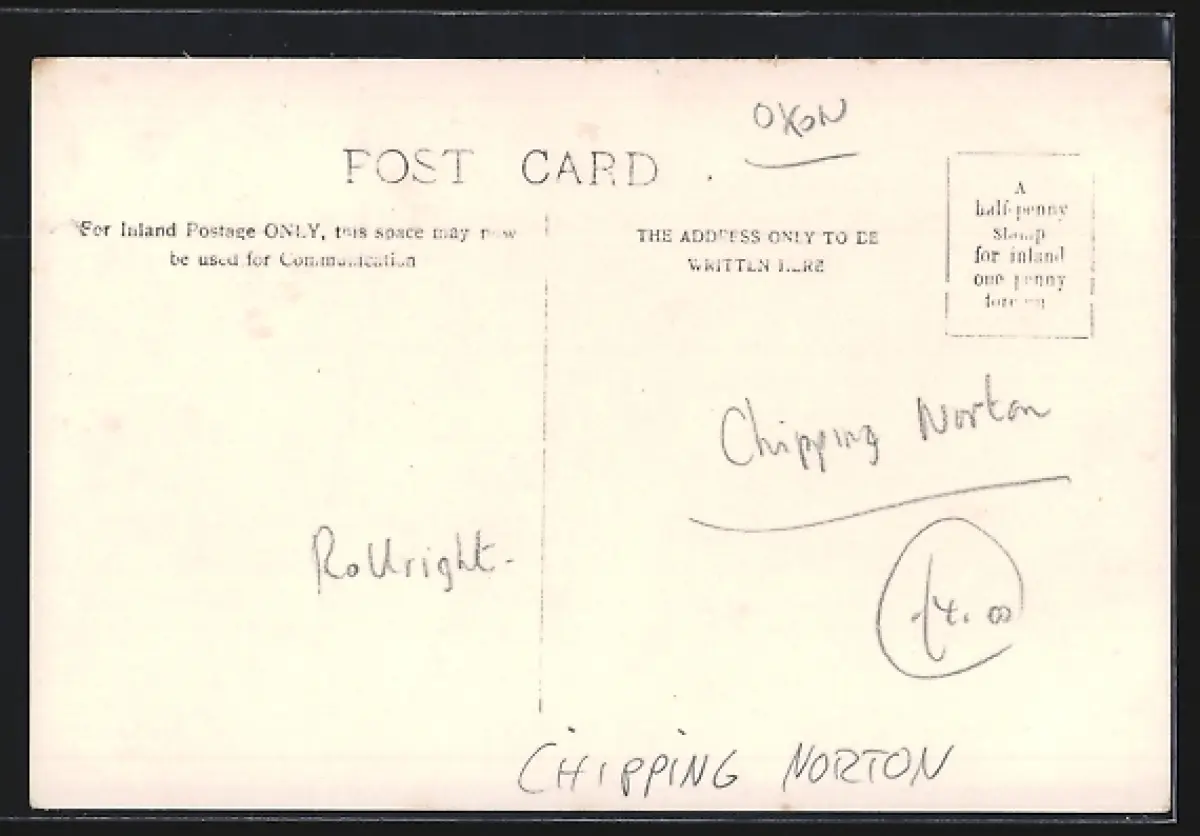 OXON
POST CARD
For Inland Postage ONLY, this space may now
be used for Communication
THE ADDRESS ONLY TO BE
WRITTEN HERE
A
half-penny
Stamp
for inland
one penny
foreign
Chipping Norton
Rollright-
£4.00
CHIPPING NORTON